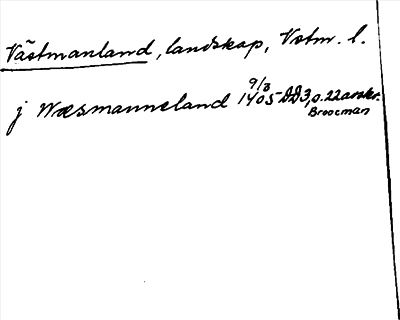 Västmanland, landskap, Vstm. l.
j Wæsmanneland 9/8 1405 DD3, o. 22 avskr.
Broocman